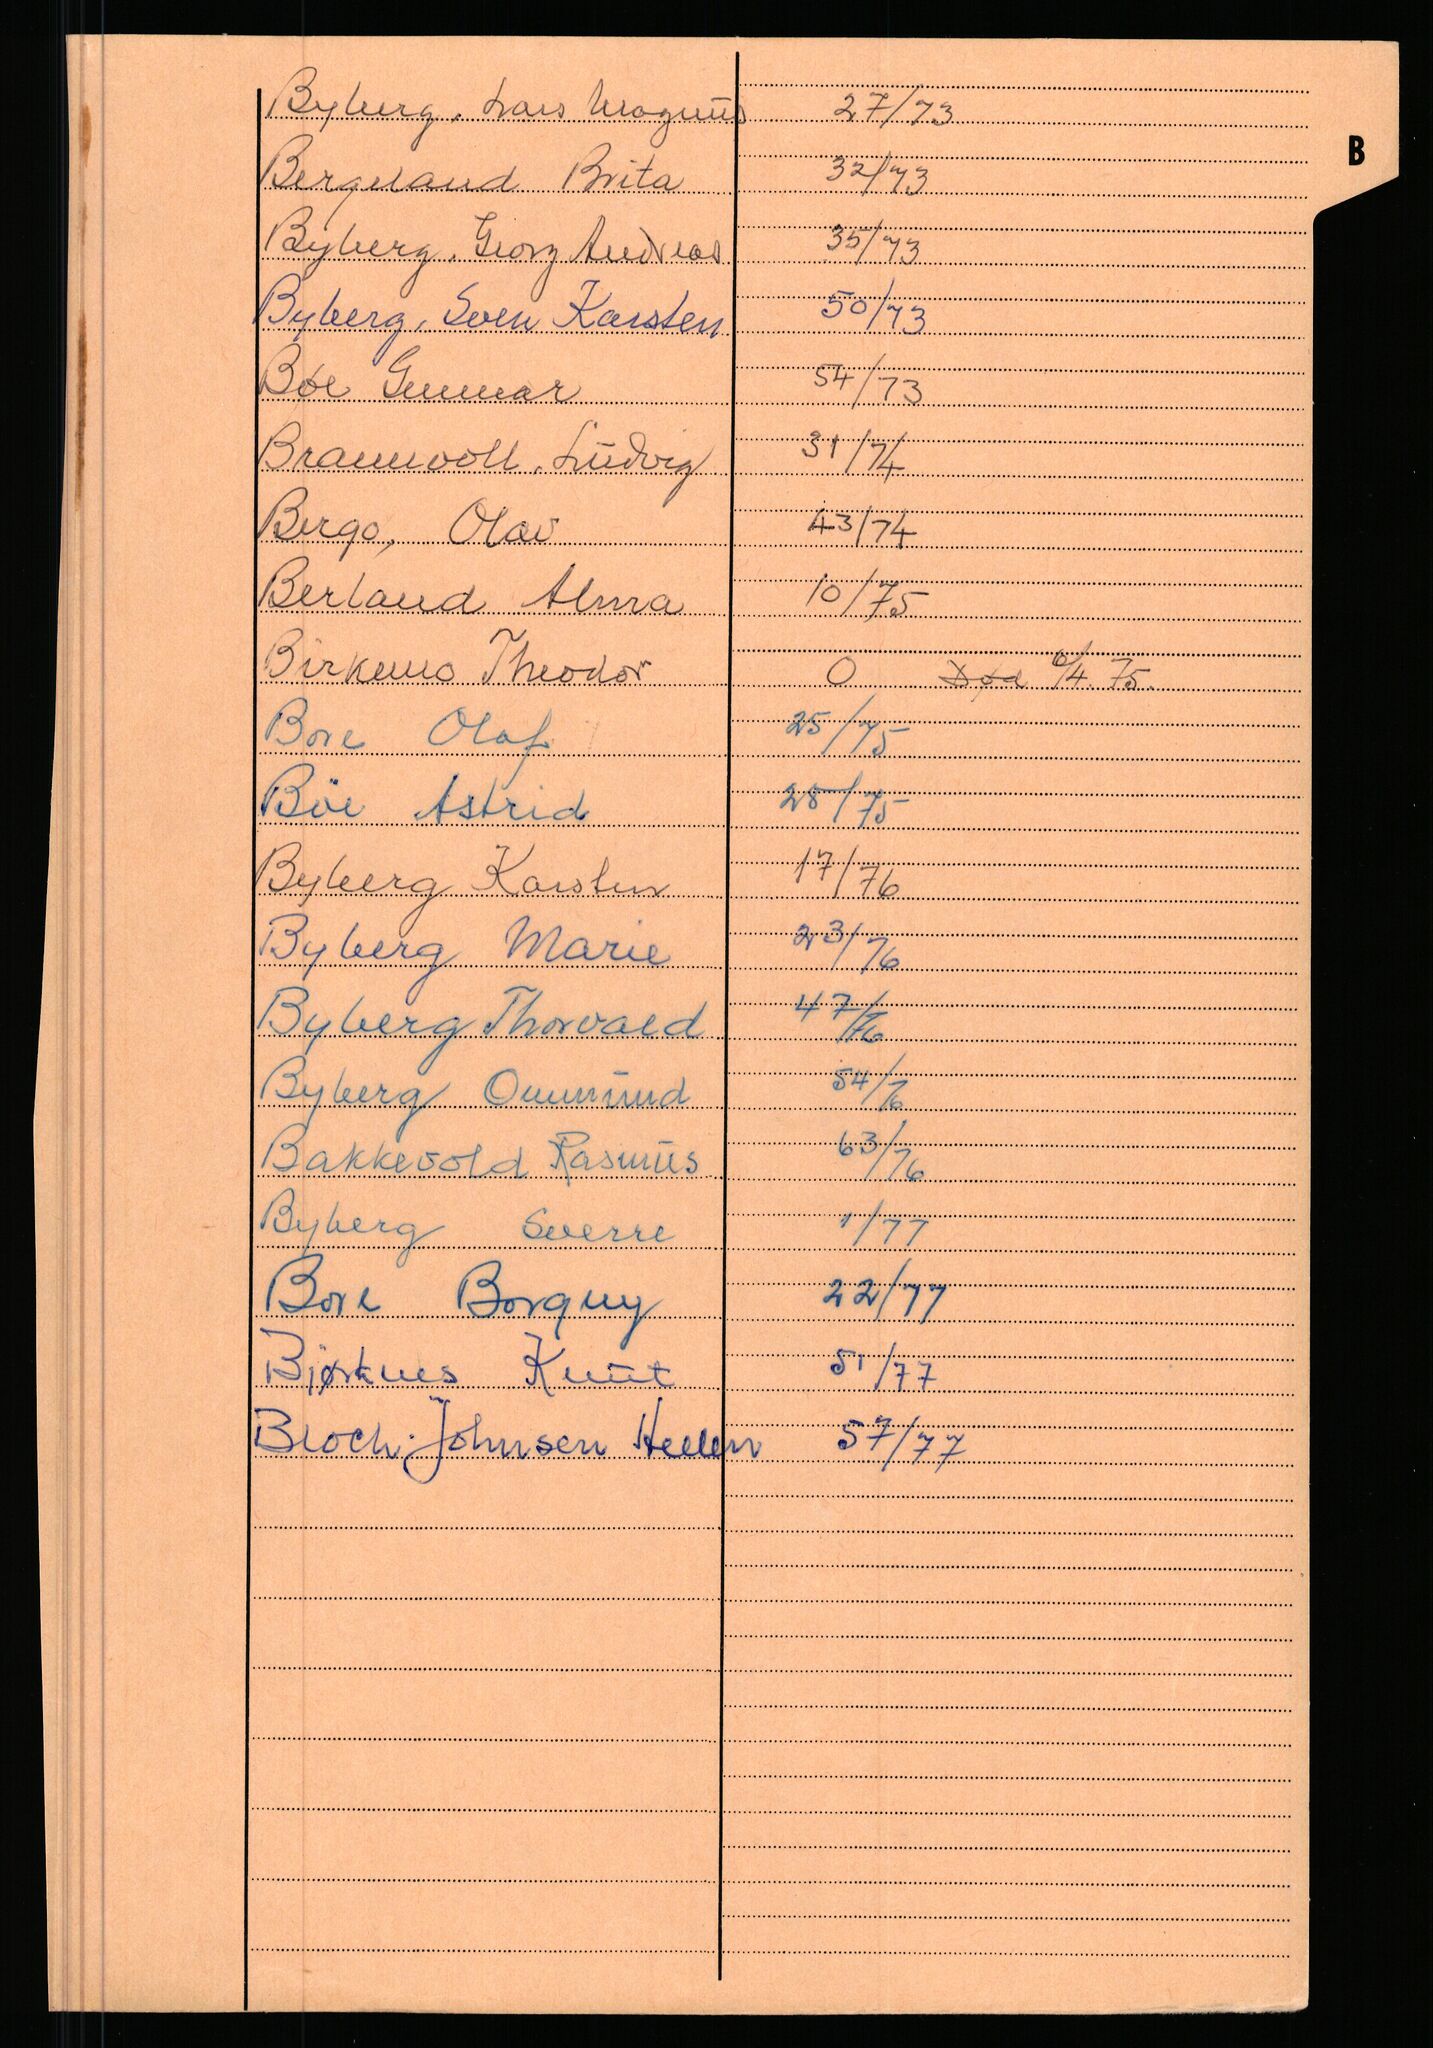 B
Byberg, Lars Magnus 27/73
Bergeland Brita 32/73
Byberg, Georg Andreas 35/73
Byberg, Sven Karsten 50/73
Bøe Gunnar 54/73
Braunvoll, Ludvig 31/74
Bergo, Olav 43/74
Berland Alma 10/75
Birkemo Theodor 0 Død 10/4. 75.
Bore Olaf 25/75
Bøe Astrid 28/75
Byberg Karsten 17/76
Byberg Marie 23/76
Byberg Thorvald 47/76
Byberg Ommund 54/76
Bakkevold Rasmus 63/76
Byberg Sverre 1/77
Bore Borguy 22/77
Bjørknes Knut 51/77
Bloch-Johnsen Hellen 57/77